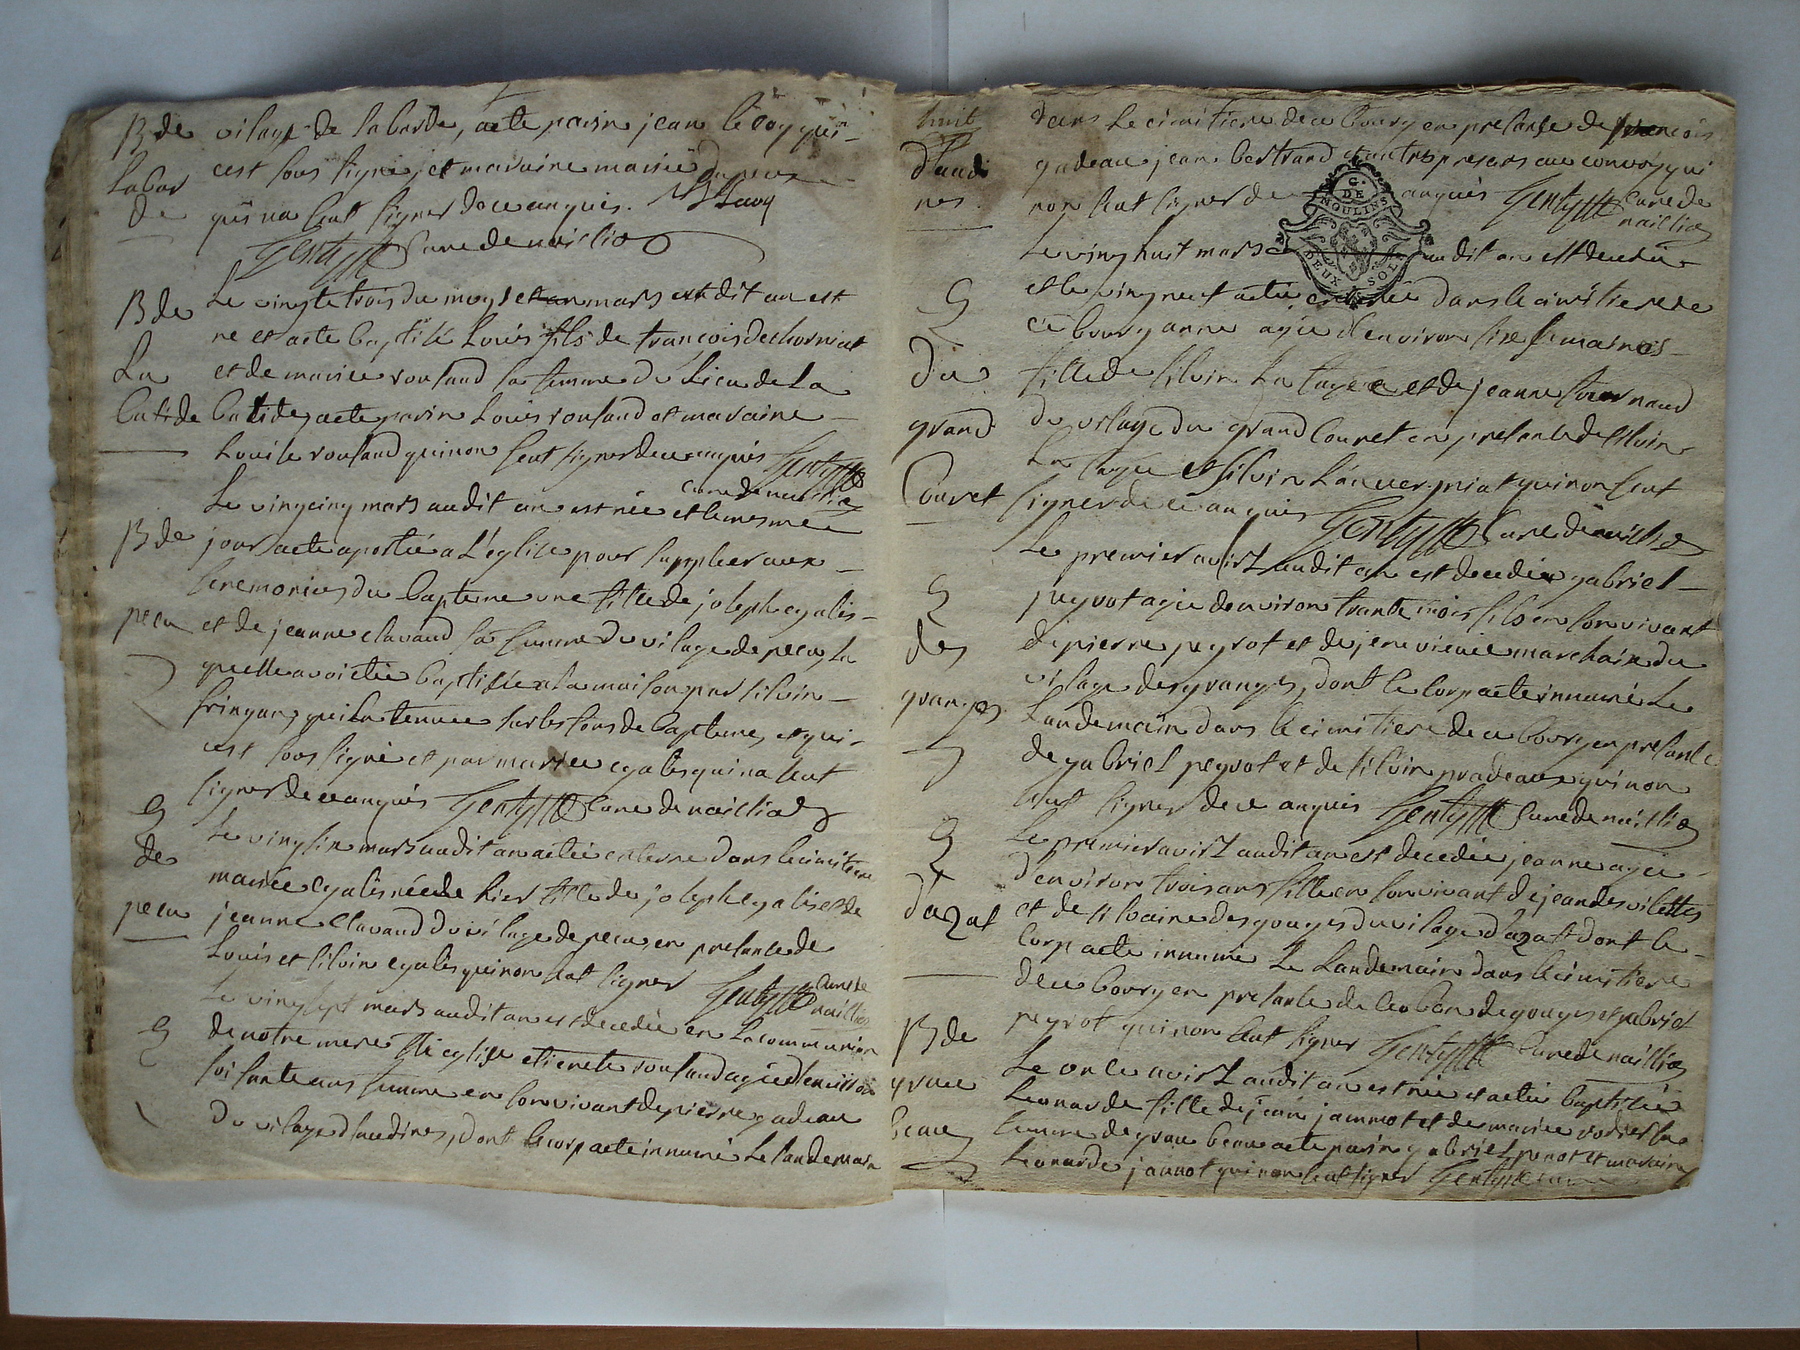 B de
vilage de laborde, a ete parin jean le roy qui
labor
est sous signé, et maraine marie
de
qui na seut signer de ce anquis. J Leroy
Gentÿ Curé de naillia
B de
Le vingte trois du moys mars dit an est
ne et a ete baptisé Louis fils de francois dechorniat
La
et de mariee roufaud sa femme du Lieu de La
batide
batide, a ete parin Louis roufaud et maraine
Louise roufaud qui non seut signer de ce anquis Gentÿ
curé de naillia
Le vingcinq mars audit an est née et le mesme
B de
jour a ete aportée a L'eglise pour supplier aux
ceremonies du bapteme une fille de joseph egalis
peeu
et de jeanne clavaud sa femme du vilage de peeu, la
quelle avoit etée baptisée a la maison par silvin
fringan, qui la tenuee sur les fons de bapteme, et qui
est sous signé et par mariee egalis qui na seut
signer de ce anquis Gentÿ Curé de naillia
E
Le vingsix mars audit an a etée enterre dans le cimitiere
de
mariee egalis née de hier fille de joseph egalis et de
peeu
jeanne Clavaud du vilage de peeu en presante de
Louis et silvin egalis qui non seut signer Gentÿ Curé de
naillia
Le vingsept mars audit an est decedée en La communion
E
de notre mere Ste eglise etienete roufaud agée d'environ
soisante ans femme en son vivant de pierre gadeau
du vilage d'laudines, dont le corp a ete innumé Le landemain
dans Le cimitiere de ce bourg en presanse de francois
d'laudi
gadeau jean bertrand et autres presans au convoy qui
nes
non seut signer de anquis Gentÿ Curé de
naillia
G.
DE
MOULINS
DEUX SOLS
Le ving huit mars audit an est decedée
E
et le vingneuf a etée enterrée dans le cimitiere de
ce bourg anne agée d'environ sixe semaines
du
fille de silvin La fagee et de jeanne fournaud
grand
du vilage du grand Couret en presante de silvin
La fagee et silvin Lauvergniat qui non seut
Couret
signer de ce anquis Gentÿ Curé de naillia
Le premier avirl audit an est decedée gabriel
E
peyrot agée d'environ trante mois fils en son vivant
des
de pierre peyrot et de jenevieuee marchain du
granges
vilage des granges, dont le corp a ete innumé Le
Landemain dans le cimitiere de ce bourg en presante
de gabriel peyrot et de silvin pradeaux qui non
seut signer de ce anquis Gentÿ Curé de naillia
E
Le premier avirl audit an est decedée jeanne agée
d'environ trois ans fille en son vivant de jean desvilettes
d'azat
et de silvaine desgouges du vilage d'azat dont le
corp a ete innumé Le Landemain dans le cimitiere
de ce bourg en presante de leobon degouges et gabriel
peyrot qui non seut signer Gentÿ Curé de naillia
B de
Le onze avirl audit an est née et a etée baptisée
grau
Leonarde fille de jean jannot et de mariee rodier sa
beau
femme de grau beau a ete parin gabriel penot et maraine
Leonarde jannot qui non seut signer Gentÿ curé